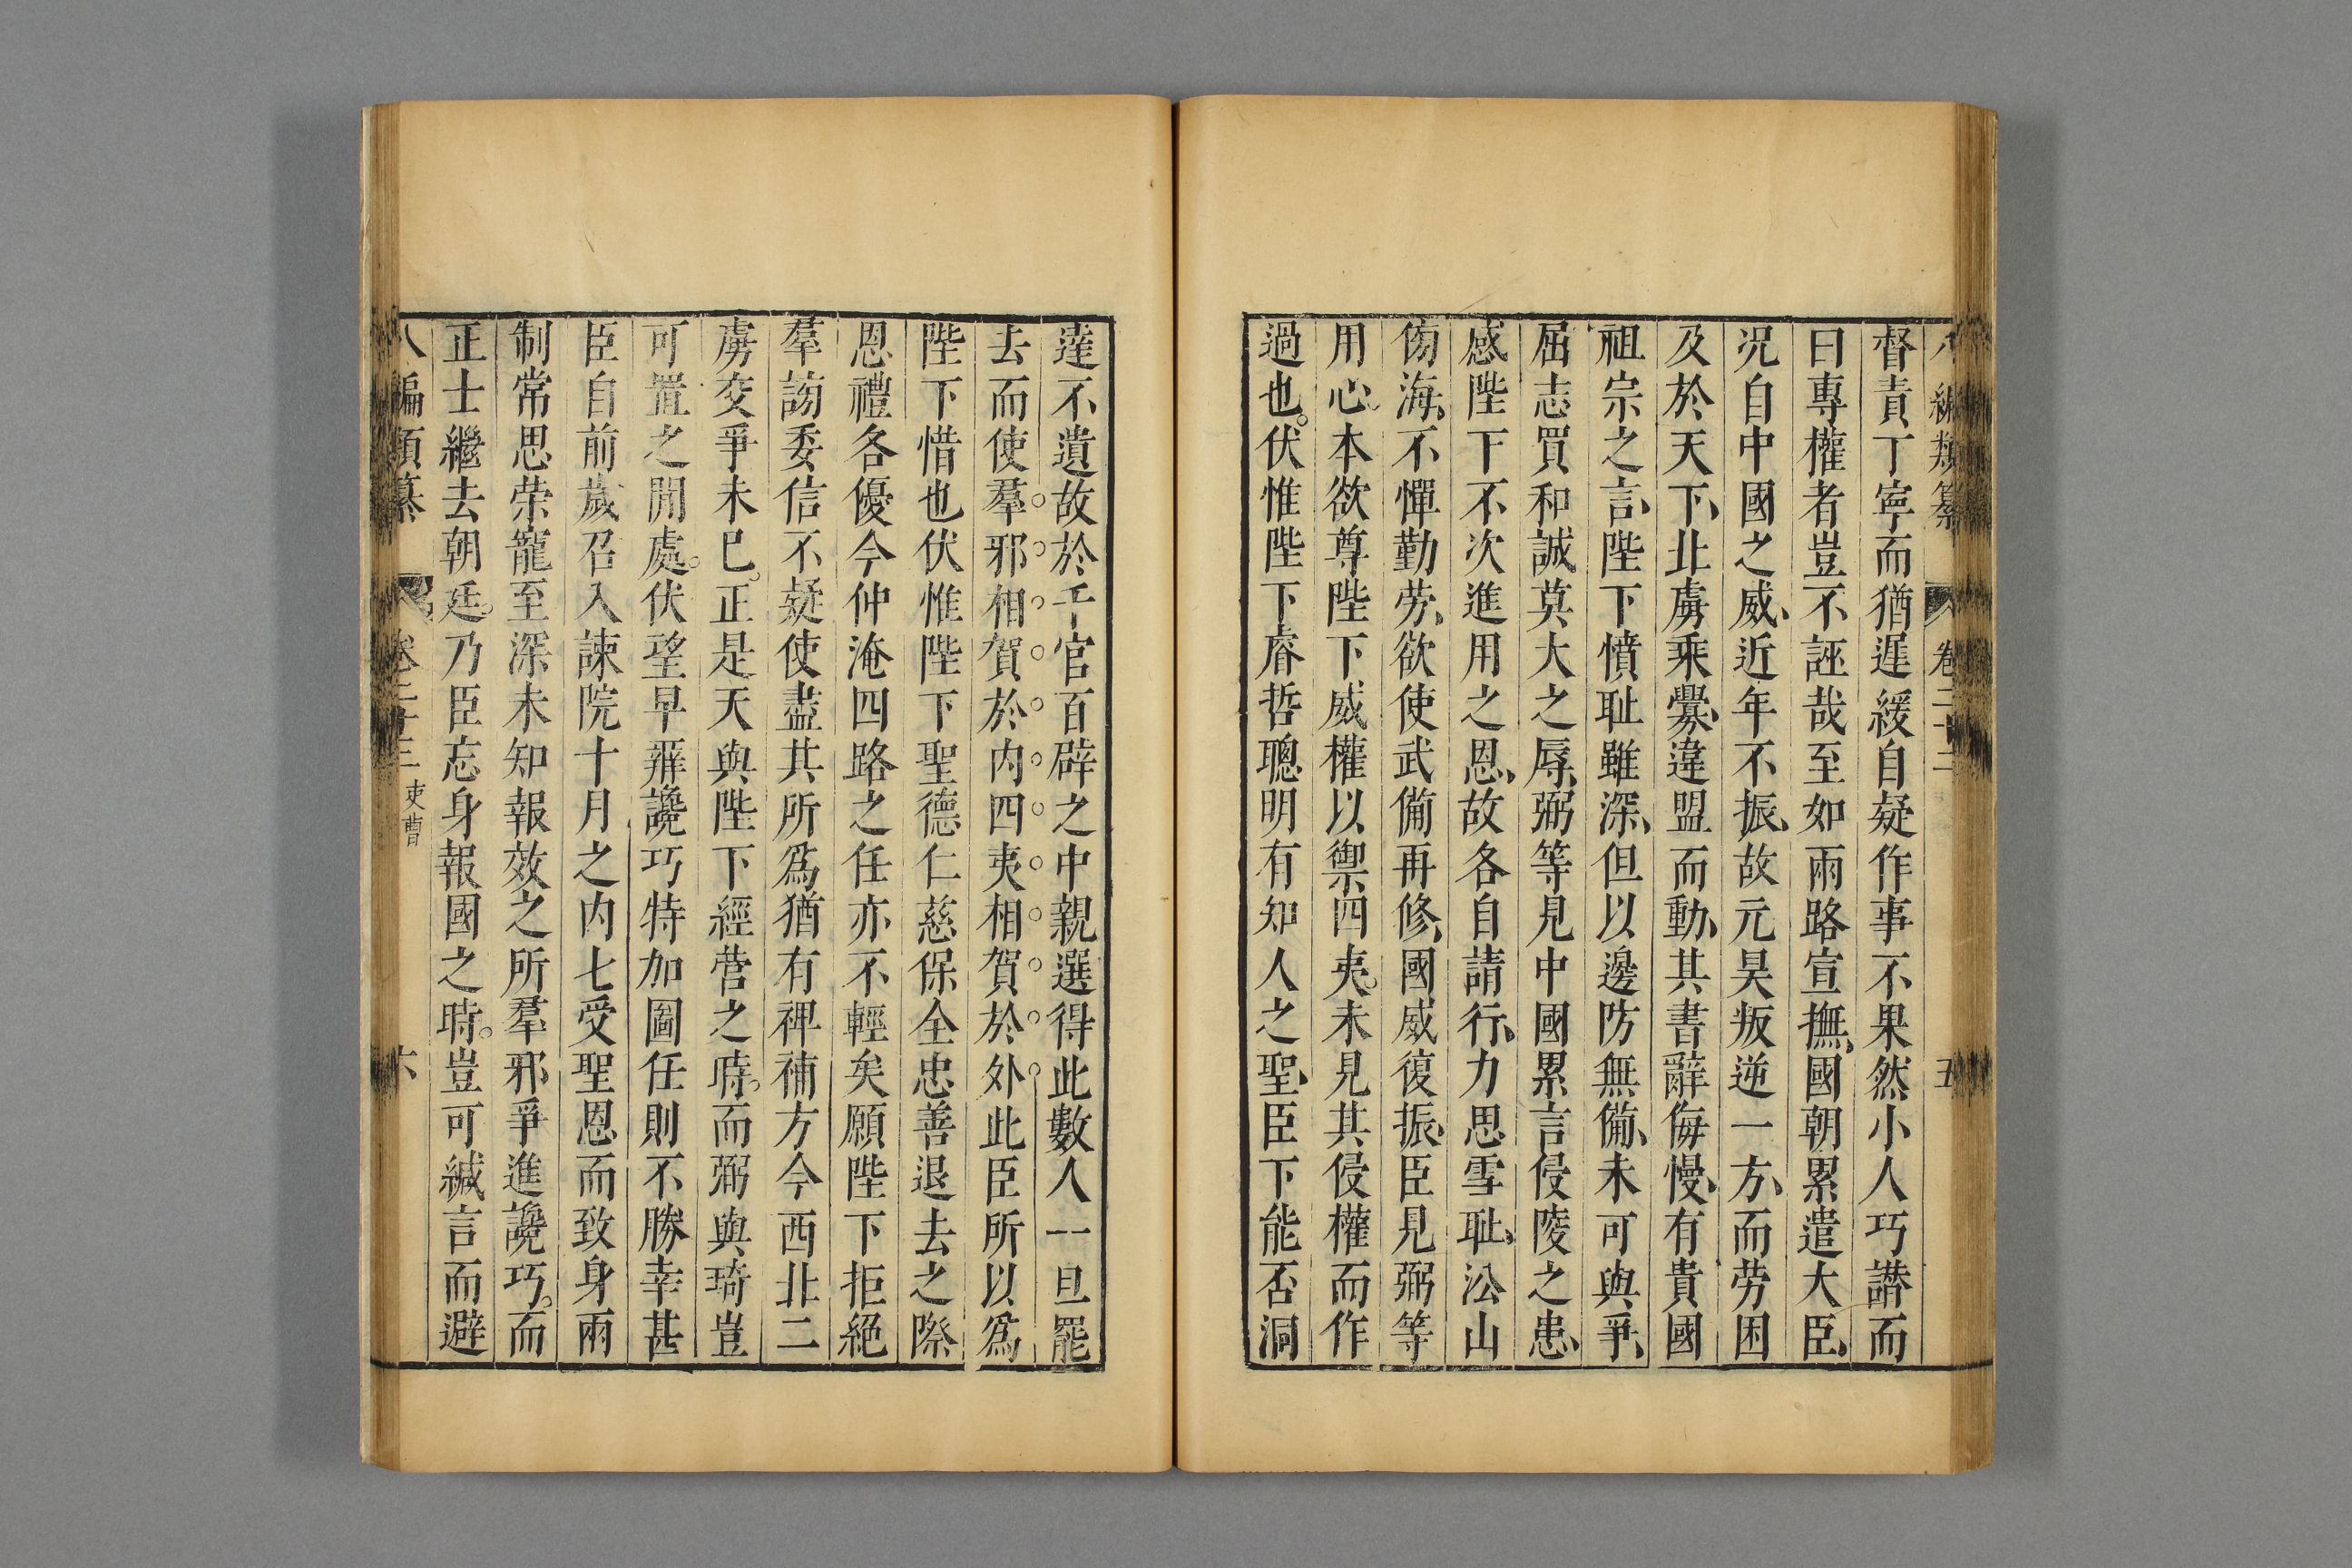 八編類纂 卷二十三 五
督責丁寧而猶遲緩自疑作事不果然小人巧譖而
曰專權者豈不誣哉至如兩路宣撫、國朝累遣大臣、
況自中國之威、近年不振、故元昊叛逆一方、而劳困
及於天下、北虜乘釁、違盟而動、其書辭侮慢、有貴國
祖宗之言、陛下憤耻雖深、但以邊防無備、未可與爭、
屈志買和誠莫大之辱、弼等見中國累言侵陵之患、
感陛下不次進用之恩、故各自請行、力思雪耻、沿山
傍海、不憚勤劳、欲使武備再修、國威復振、臣見弼等
用心、本欲尊陛下威權以禦四夷。未見其侵權而作
過也。伏惟陛下睿哲聰明有知人之聖、臣下能否洞
達不遺故於千官百辟之中親選得此數人一旦罷
去而使羣邪相賀於内四夷相賀於外此臣所以爲
陛下惜也伏惟陛下聖德仁慈保全忠善退去之際
恩禮各優今仲淹四路之任亦不輕矣願陛下拒絕
羣謗委信不疑使盡其所爲猶有裨補方今西北二
虜交爭未已。正是天與陛下經营之時。而弼與琦豈
可置之閒處。伏望早辨讒巧特加圖任則不勝幸甚
臣自前歲召入諫院十月之内七受聖恩而致身兩
制常思荣寵至深未知報效之所羣邪爭進讒巧。而
正士繼去朝廷。乃臣忘身報國之時。豈可緘言而避
八編類纂 卷二十三 吏曹 六